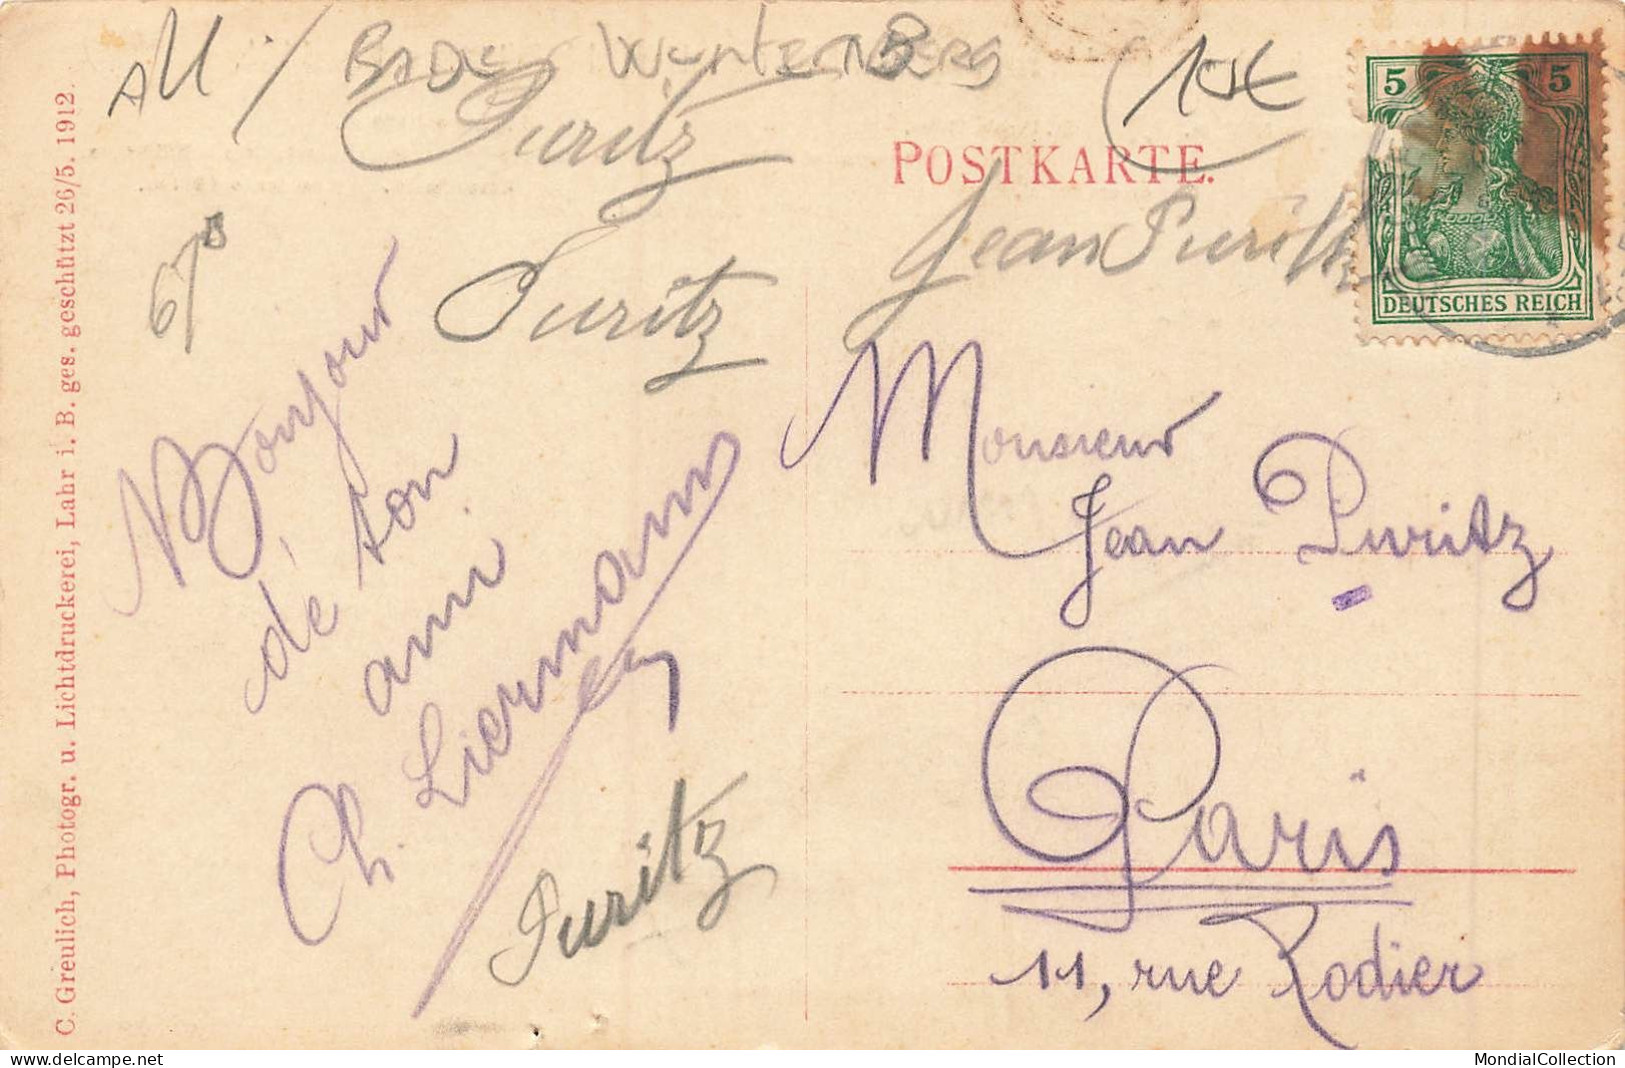 All / BADE WURTEMBERG
10€
Puritz
POSTKARTE.
Jean Puritz
5 5
DEUTSCHES REICH
Puritz
Bonjour
de ton
ami
Ch. Liermann
Puritz
Monsieur
Jean Puritz
Paris
11, rue Rodier
C. Greulich, Photogr. u. Lichtdruckerei, Lahr i. B. ges. geschützt 26/5. 1912.
MondialCollection